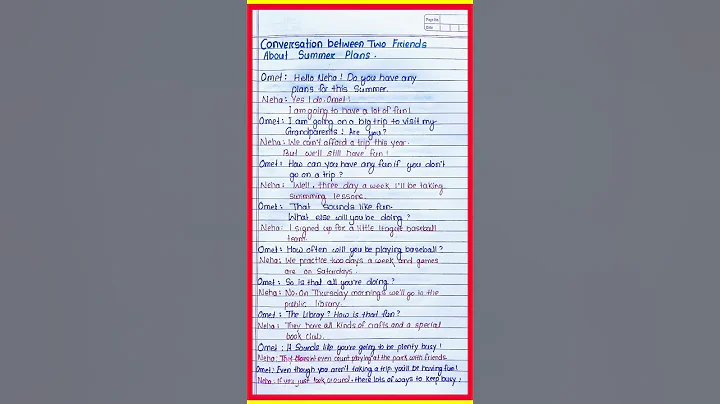 Page No.
Date
Conversation between Two Friends
About Summer Plans.
Omet: Hello Neha! Do you have any
plans for this Summer.
Neha: Yes I do. Omet!
I am going to have a lot of fun!
Omet: I am going on a big trip to visit my
Grandparents! Are you?
Neha: We can't afford a trip this year.
But we'll still have fun!
Omet: How can you have any fun if you don't
go on a trip?
Neha: Well, three day a week I'll be taking
swimming lessons.
Omet: That sounds like fun.
What else will you be doing?
Neha: I signed up for a little league baseball
team.
Omet: How often will you be playing baseball?
Neha: We practice two days a week and games
are on Saturdays.
Omet: So is that all you're doing?
Neha: No. On Thursday mornings we'll go to the
public library.
Omet: The Library? How is that fun?
Neha: They have all kinds of crafts and a special
book club.
Omet: It Sounds like you're going to be plenty busy!
Neha: That doesn't even count playing at the park with friends
Omet: Even though you aren't taking a trip you'll be having fun!
Neha: If you just look around, there lots of ways to keep busy!